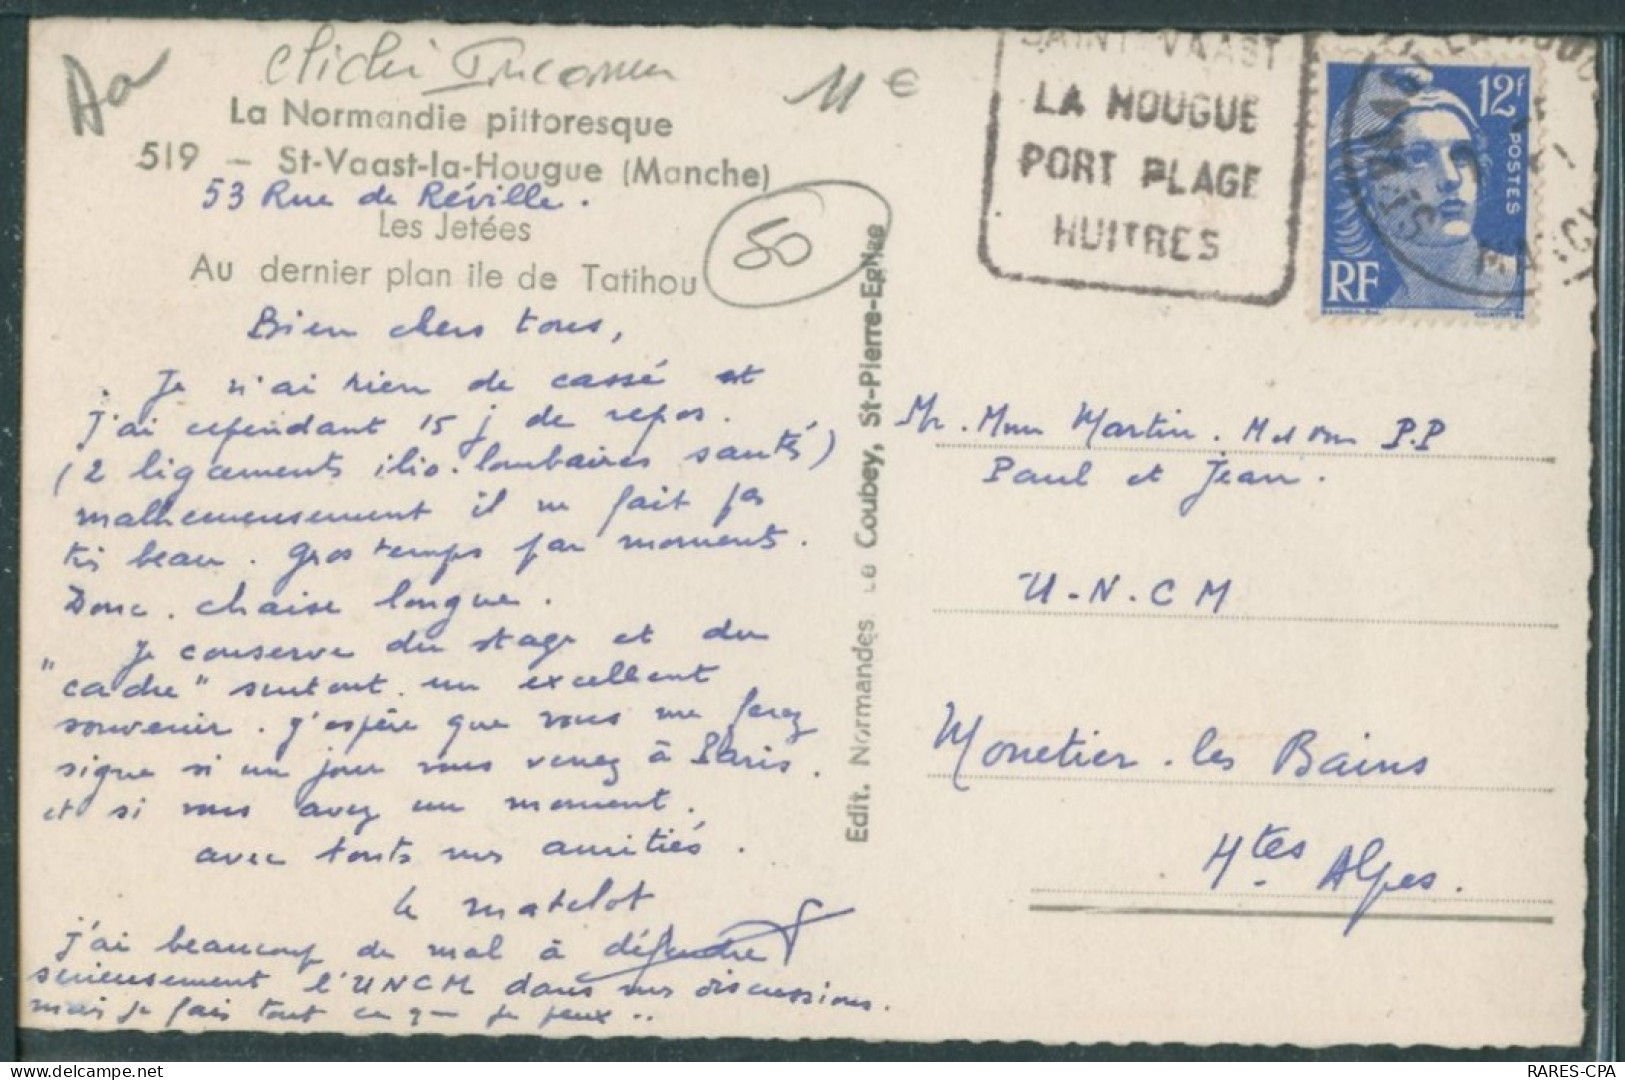 Cliché Inconnu
11 €
La Normandie pittoresque
519 — St-Vaast-la-Hougue (Manche)
53 Rue de Réville.
Les Jetées
Au dernier plan ile de Tatihou
50
Bien chers tous,
Je n'ai rien de cassé et
j'ai cependant 15 j de repos.
(2 ligaments ilio-lombaires sautés)
malheureusement il ne fait pas
très beau. Gros temps par moments.
Donc. chaise longue.
Je conserve du stage et du
"cadre" surtout un excellent
souvenir. J'espère que vous me ferez
signe si un jour vous venez à Paris.
et si vous avez un moment.
avec toutes mes amitiés.
le matelot
J'ai beaucoup de mal à défendre
serieusement l'UNCM dans mes discussions.
mais je fais tout ce que je peux..
Edit. Normandes Le Coubey, St-Pierre-Eglise
SAINT VAAST
LA HOUGUE
PORT PLAGE
HUITRES
12f
POSTES
RF
Mr. Mme Martin. P.P
Paul et Jean.
U.N.C M
Monetier.les Bains
Htes Alpes.
RARES-CPA